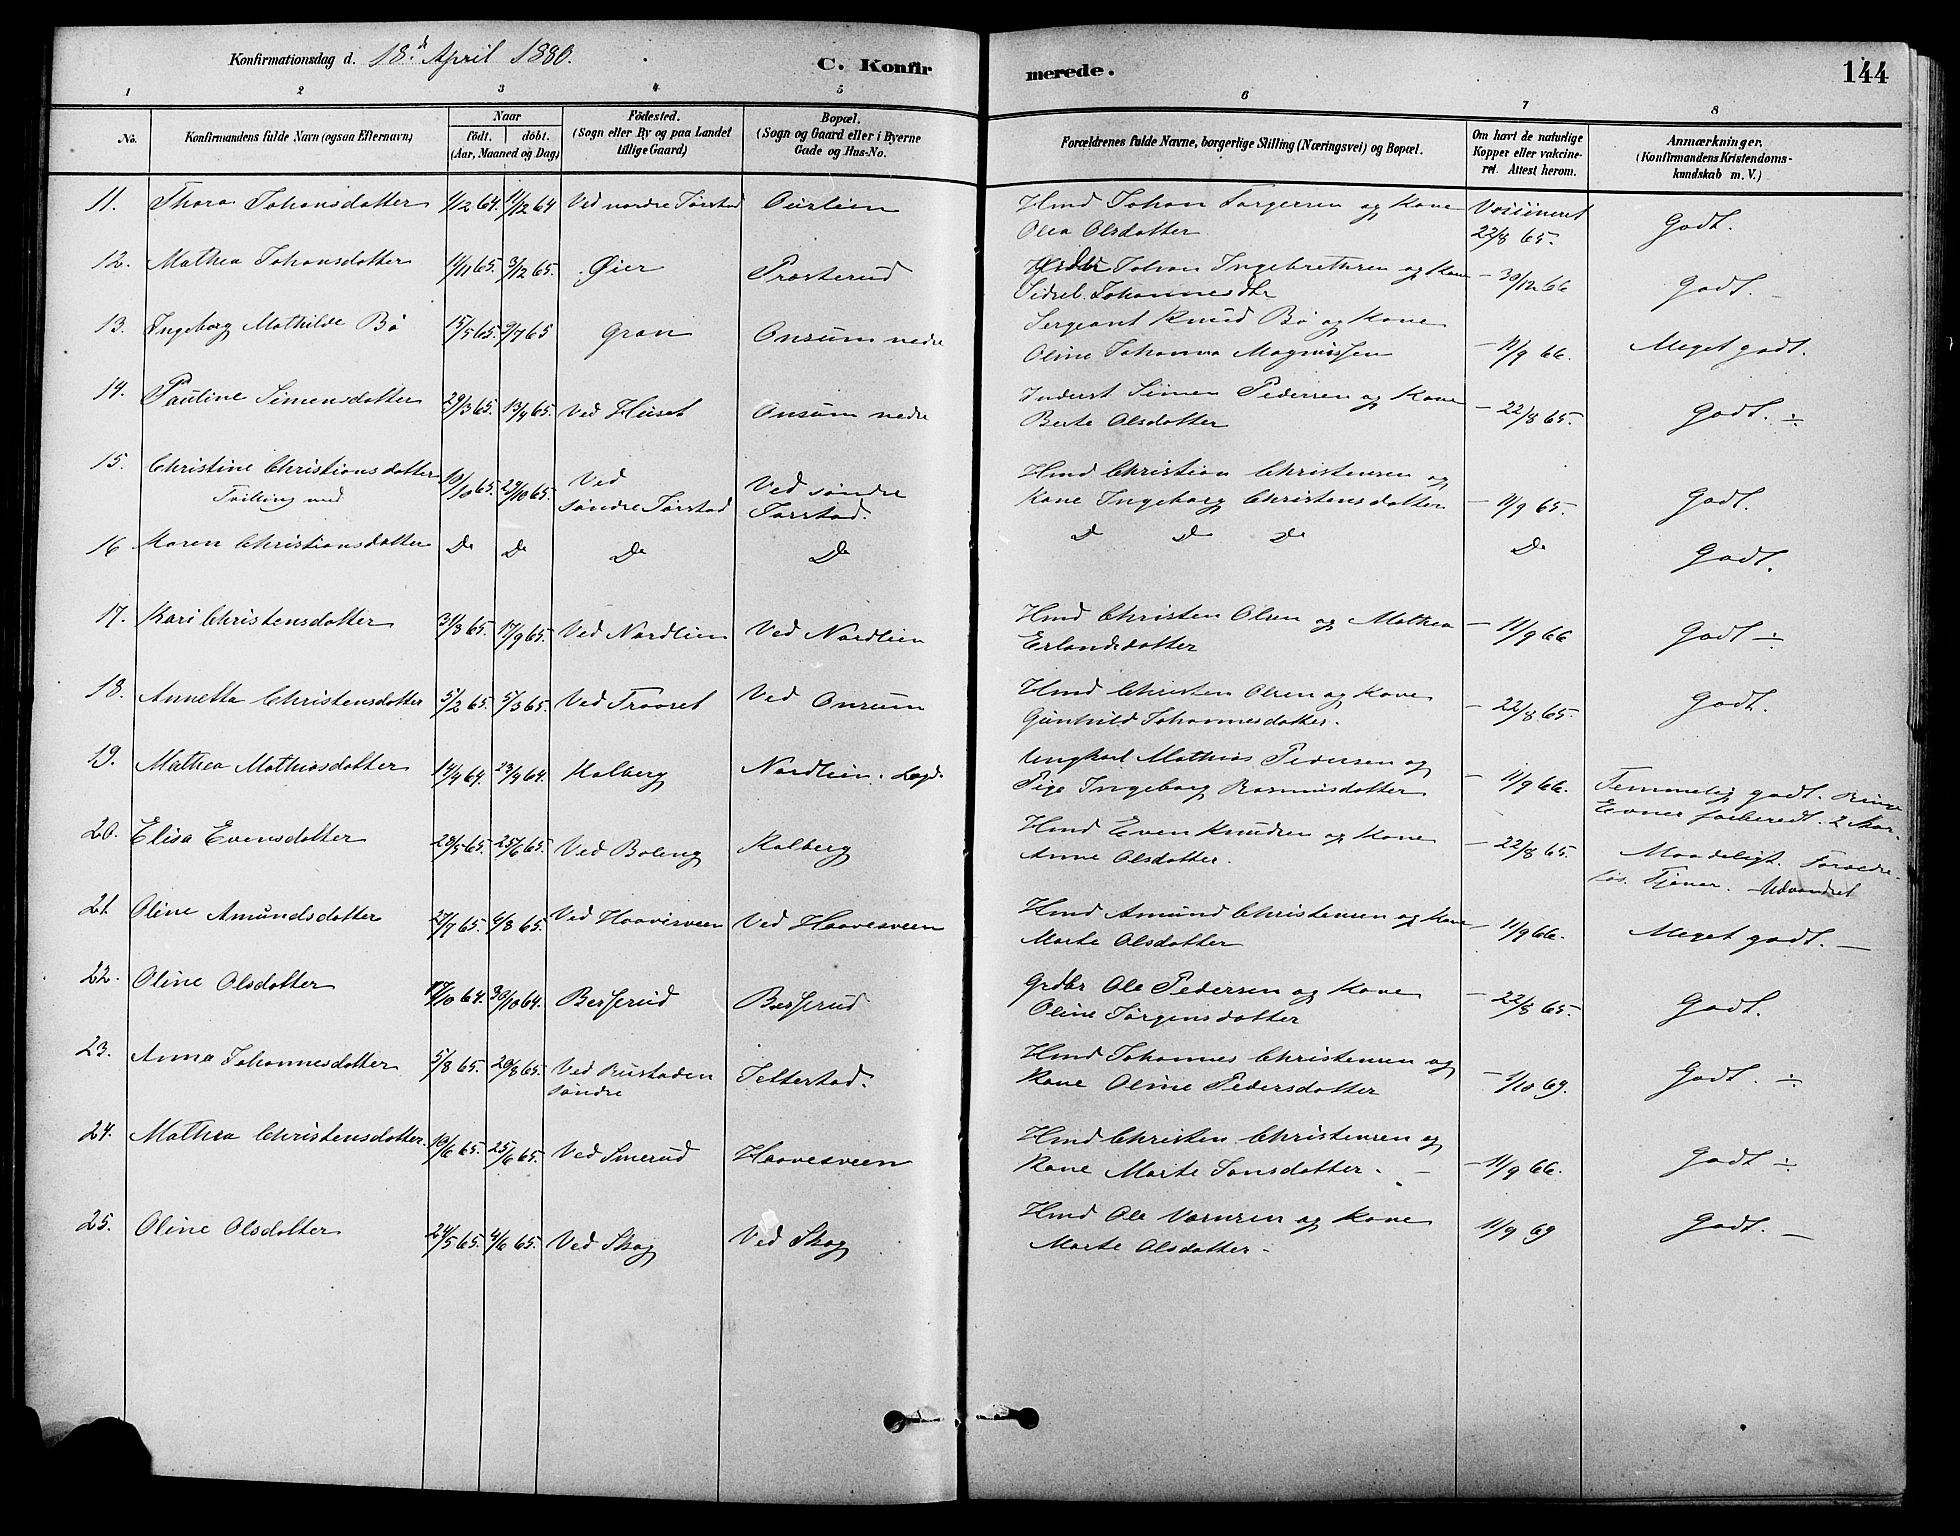 Konfirmationsdag d. 18.d April 1880. C. Konfirmerede. 144
1 2 3 4 5 6 7 8
No. Konfirmandens fulde Navn (ogsaa Efternavn) Naar Født. døbt. (Aar, Maaned og Dag) Fødested. (Sogn eller By og paa Landet tillige Gaard) Bopæl. (Sogn og Gaard eller i Byerne Gade og Hus-No. Forældrenes fulde Navne, borgerlige Stilling (Næringsvei) og Bopæl. Om havt de naturlige Kopper eller vakcineret. Attest herom. Anmærkninger. (Konfirmandens Kristendomskundskab m. V.)
11. Thora Johansdatter 1/12 64. 11/12 64 Ved nordre Tørstad Hmd Johan og Kone Vaksineret
Olea Olsdatter 22/8 65. Godt.
12. Mathea Johansdatter 1/11 65. 3/12 65. Øier Præsterud Johan Ingebrethsen og Kone – 30/12 66 Godt. –
Johannesdtr
13. Ingeborg Mathilde Bø 15/5 65. 9/7 65 Gran Onsum nedre Sergeant Knud Bø og Kone
Oline Johanna Magnussen – 11/9 66. Meget godt.
14. Pauline Simensdatter 29/3 65. 13/4 65. Ved Huset Onsum nedre Inderst Simen Pedersen og Kone
Berte Olsdatter – 22/8 65. Godt. ÷
15. Christine Christiansdatter 10/10 65. 29/10 65. Ved søndre Tørstad Ved søndre Tørstad. Hmd Christian Christensen og
Tvilling med Kone Ingeborg Christensdatter – 11/9 65. Godt.
16 Karen Christiansdatter Do Do Do Do Do Do Do Do Godt.
17. Kari Christensdatter 31/8 65. 17/9 65. Ved Nordlien Ved Nordlien Hmd Christen Olsen og Mathea – 11/9 66 Godt ÷
Erlandsdatter
18. Annetta Christensdatter 5/2 65. 5/3 65. Ved Traaset Ved Onsum Hmd Christen Olsen og Kone
Gunhild Johannesdatter. – 22/8 65. Godt.
19. Mathea Mathiasdatter 14/4 64. 23/4 64. Kalberg Nordlien. Lægd. Ungkarl Mathias Pedersen og
Pige Ingeborg Rasmusdatter – 11/9 66. Temmelig godt. Ringe
Evner forberedt. 2 Aar.
20. Elisa Evensdatter 28/5 65. 25/6 65. Ved Boleng Kalberg Hmd Even Knudsen og Kone
Anne Olsdatter. – 22/8 65. Maadeligt. Forældreløs. Tjener. – Udvandret
21. Oline Amundsdatter 27/7 65. 6/8 65. Ved Haavisveen Ved Haavesveen Hmd Amund Christensen og Kone
Marte Olsdatter – 11/9 66. Meget godt. –
22. Oline Olsdatter 17/10 64. 30/10 64. Berserud Berserud Grdbr Ole Pedersen og Kone
Oline Jørgensdatter – 22/8 65. Godt.
23. Anna Johannesdatter 5/8 65. 20/8 65. Ved Rustaden søndre Jetterstad. Hmd Johannes Christensen og
Kone Oline Pedersdatter – 1/10 69. Godt. ÷
24. Mathea Christensdatter. 10/6 65. 25/6 65. Ved Smerud Haavesveen Hmd Christen Christensen og
Kone Marte Jonsdatter. – – 11/9 66. Godt ÷
25. Oline Olsdatter 24/5 65. 4/6 65. Ved Skog Ved Skog Hmd Ole og Kone
Marte Olsdatter – 11/9 69 Godt. –